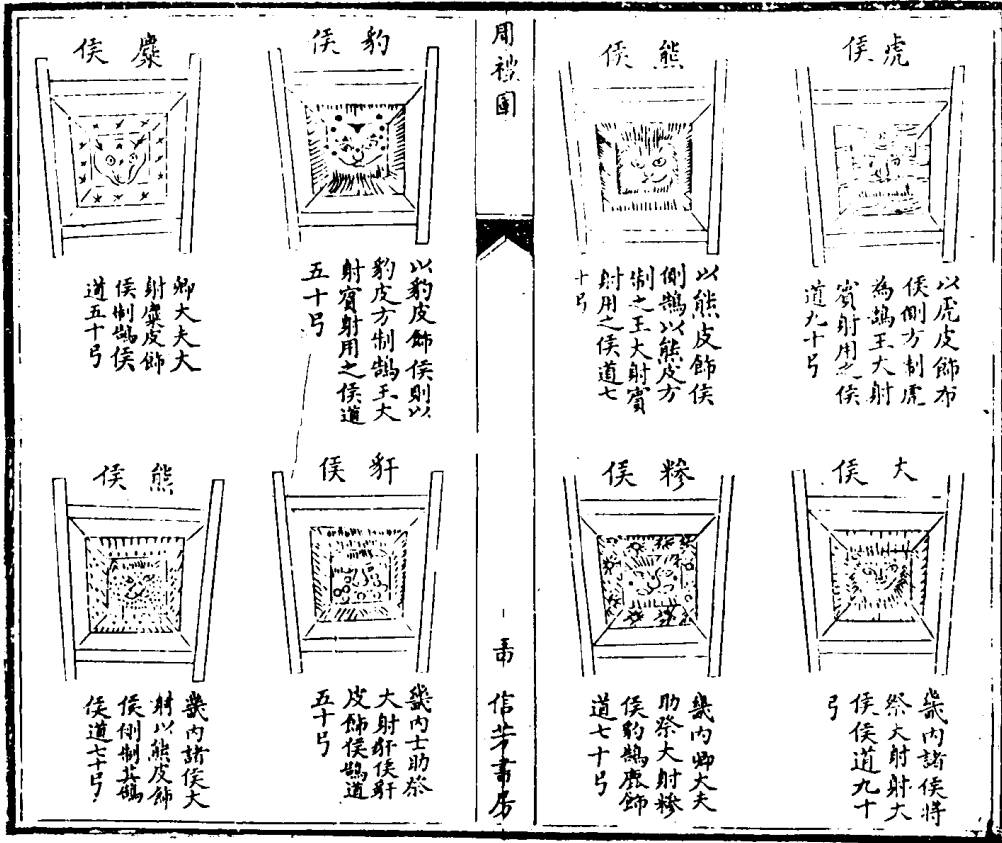 虎侯
以虎皮飾布
侯側方制虎
為鵠王大射
賓射用之侯
道九十弓
熊侯
以熊皮飾侯
側鵠以熊皮方
制之王大射賓
射用之侯道七
十弓
大侯
畿內諸侯將
祭大射射大
侯侯道九十
弓
糝侯
畿內卿大夫
助祭大射糝
侯豹鵠麋飾
道七十弓
周禮圖
信芳書房
豹侯
以豹皮飾侯則以
豹皮方制鵠王大
射賓射用之侯道
五十弓
麋侯
卿大夫大
射麋皮飾
侯制鵠侯
道五十弓
豻侯
畿內士助祭
大射豻侯豻
皮飾侯鵠道
五十弓
熊侯
畿內諸侯大
射以熊皮飾
侯側制其鵠
侯道七十弓